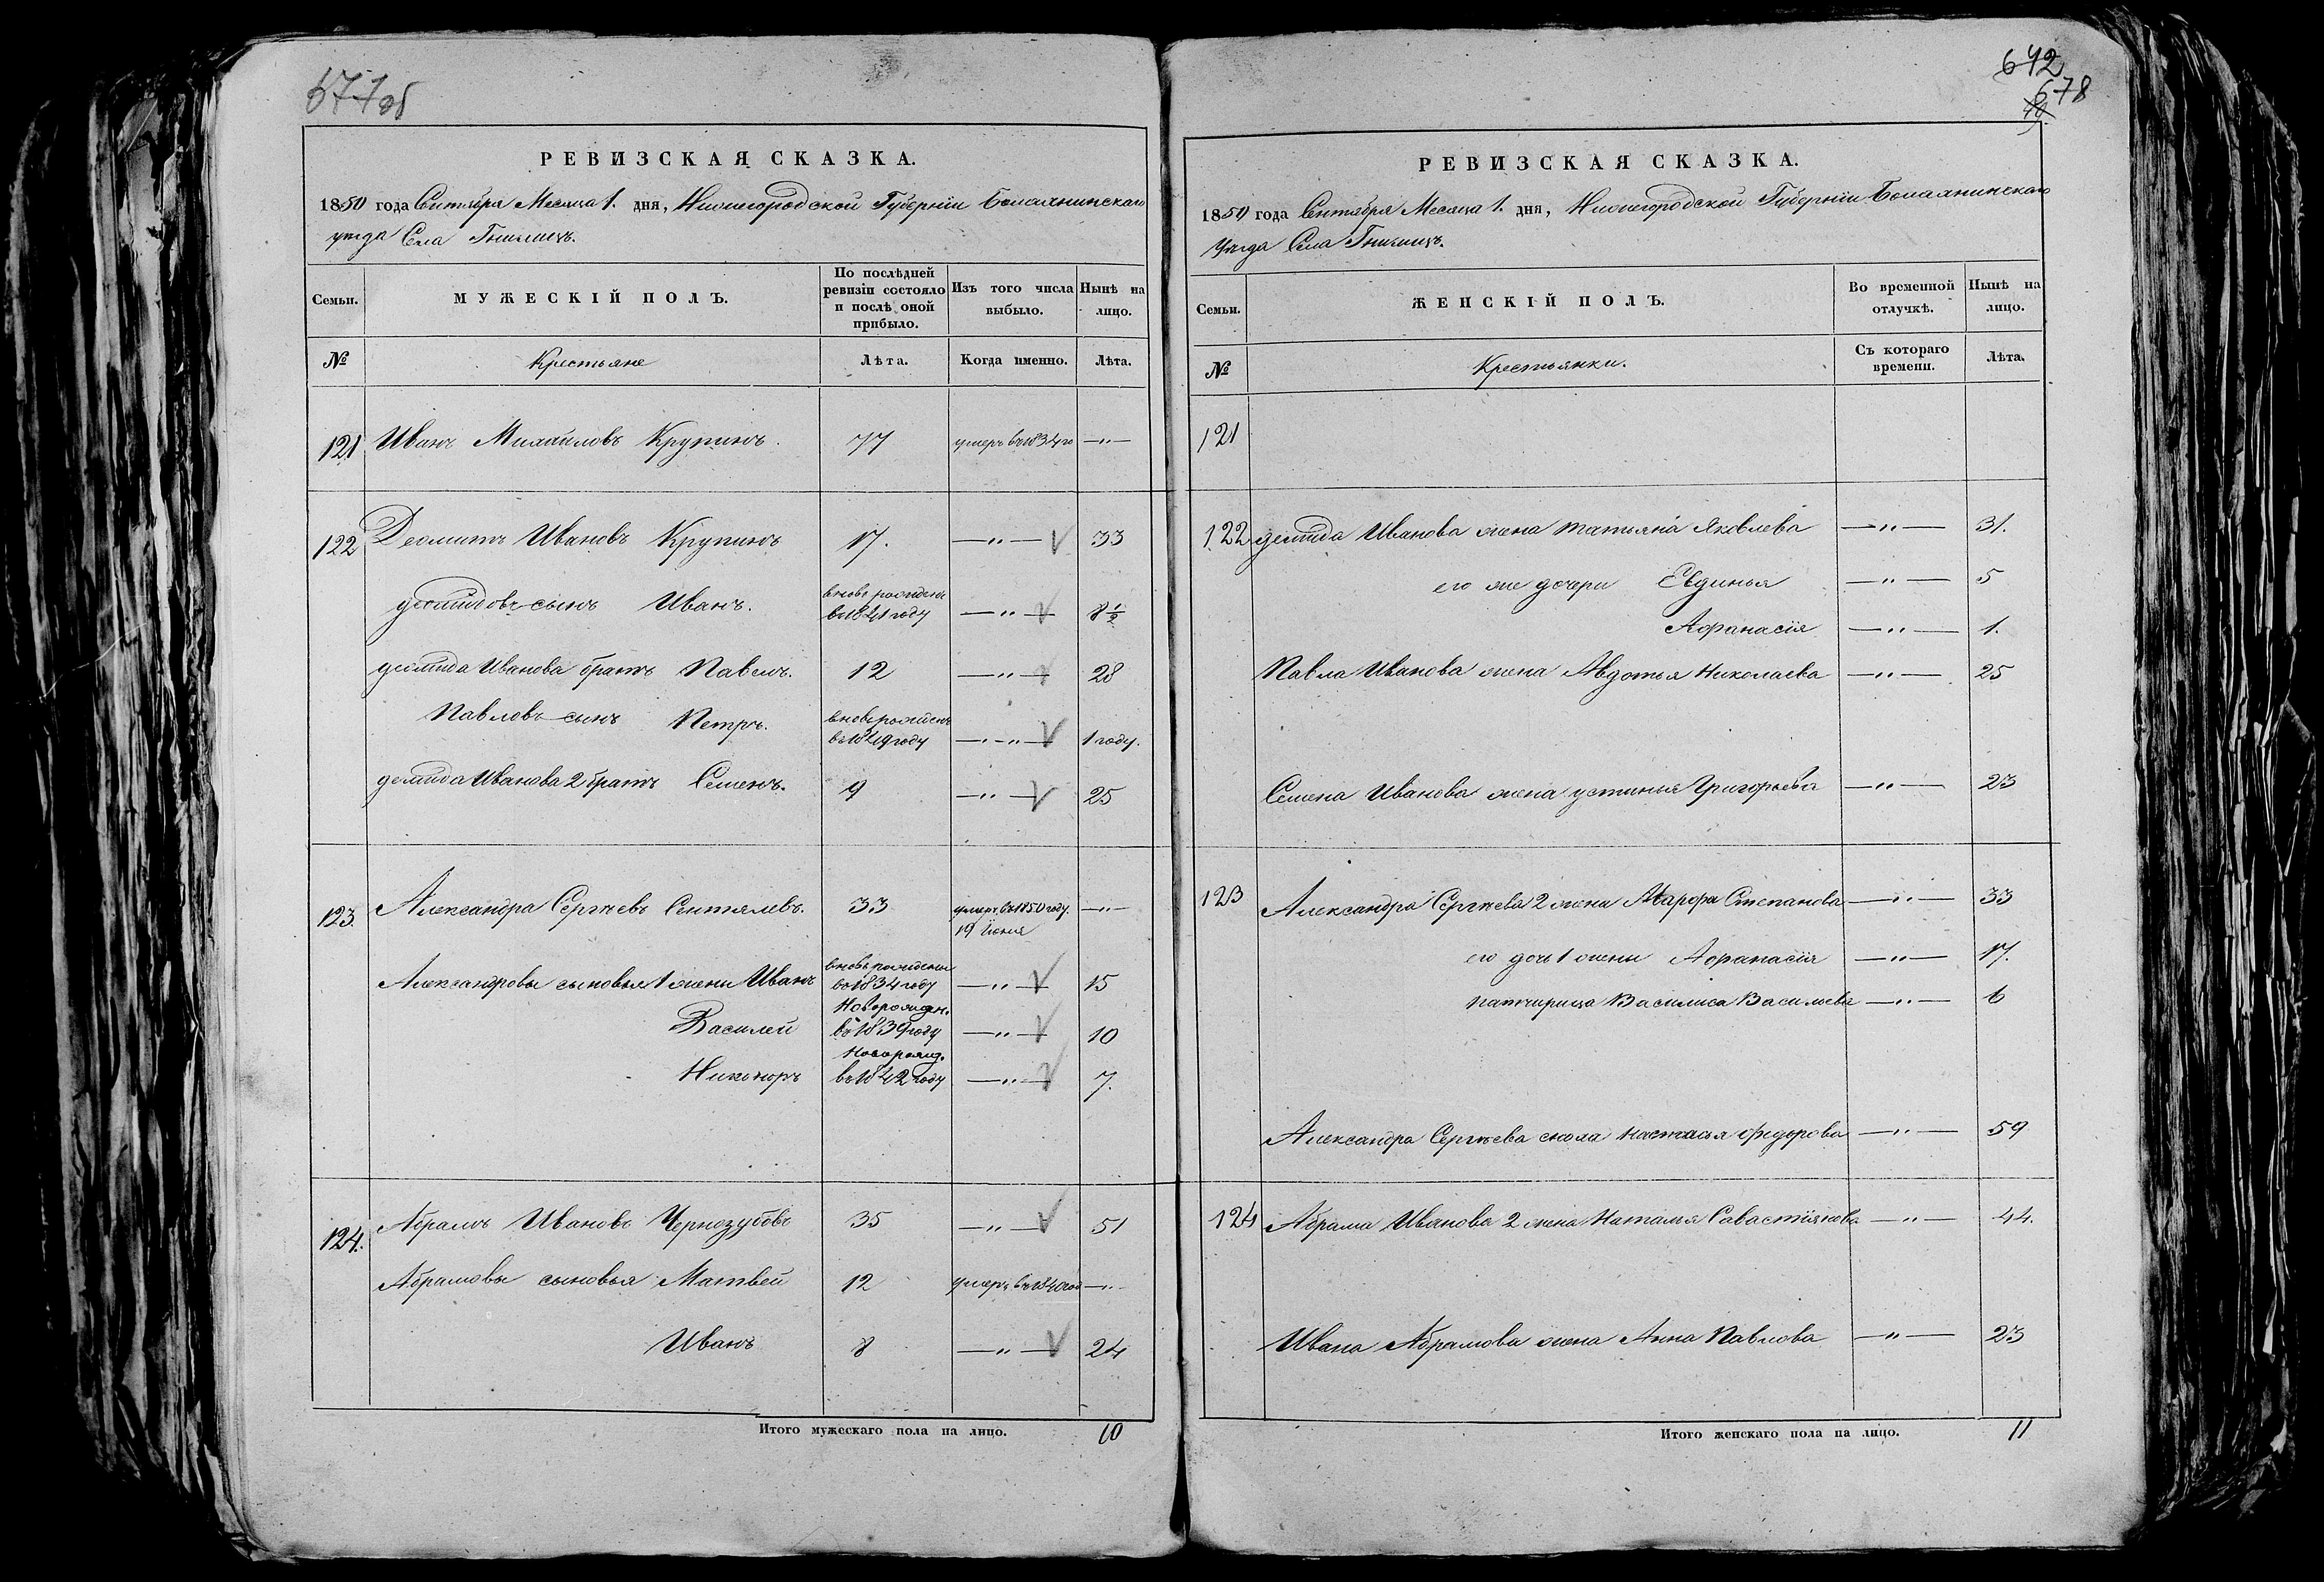 677об
РЕВИЗСКАЯ СКАЗКА.
1850 года Сентября Месяца 1. дня, Нижегородской Губернiи Балахнинскаго
уезда Села Гнилицъ.
Семьи. МУЖЕСКІЙ ПОЛЪ. По послѣдней ревизіи состояло и послѣ оной прибыло. Изъ того числа выбыло. Нынѣ на лицо.
№ Крестьяне Лѣта. Когда именно. Лѣта.
121 Иванъ Михайловъ Крупинъ. 77 умеръ въ 1834 го —"—
122 Демитъ Ивановъ Крупинъ 17. —"— 33
демидовъ сынъ Иванъ. вновь рожденъ въ 1841 году —"— 8 1/2
демида Иванова братъ Павелъ. 12 —"— 28
Павловъ сынъ Петръ. вновь рожденъ въ 1849 году —"— 1 году.
демида Иванова 2 братъ Семенъ. 9 —"— 25
123. Александра Сергѣевъ Сентялевъ. 33 умеръ въ 1850 году. 19 Июня —"—
Александровы сыновья 1 жены Иванъ вновь рожденъ въ 1834 году —"— 15
Василей Новорожден. въ 1839 году —"— 10
Никоноръ Новорожд. въ 1842 году —"— 7.
124. Абрамъ Ивановъ Чернозубовъ 35 —"— 51
Абрамовы сыновья Матвей 12 умеръ въ 1840 год —"—
Иванъ 8 —"— 24
Итого мужескаго пола на лицо. 10
642
678
РЕВИЗСКАЯ СКАЗКА.
1850 года Сентября Месяца 1. дня, Нижегородской Губернiи Балахнинскаго
Уезда Села Гнилицъ.
Семьи. ЖЕНСКІЙ ПОЛЪ. Во временной отлучкѣ. Нынѣ на лицо.
№ Крестьянки. Съ котораго времени. Лѣта.
121
122 демида Иванова жена татьяна Яковлева —"— 31.
его же дочери Евдинья —"— 5
Афанасiя —"— 1.
Павла Иванова жена Авдотья Николаева —"— 25
Семена Иванова жена устинья Григорьева —"— 23
123 Александра Сергѣева 2 жена Марфа Степанова —"— 33
его дочь 1 жены Афанасiя —"— 17.
патчирица Василиса Васильева —"— 6
Александра Сергѣева сноха Настасья Федорова —"— 59
124 Абрама Иванова 2 жена Наталья Савастiянова —"— 44.
Ивана Абрамова жена Анна Павлова —"— 23
Итого женскаго пола на лицо. 11